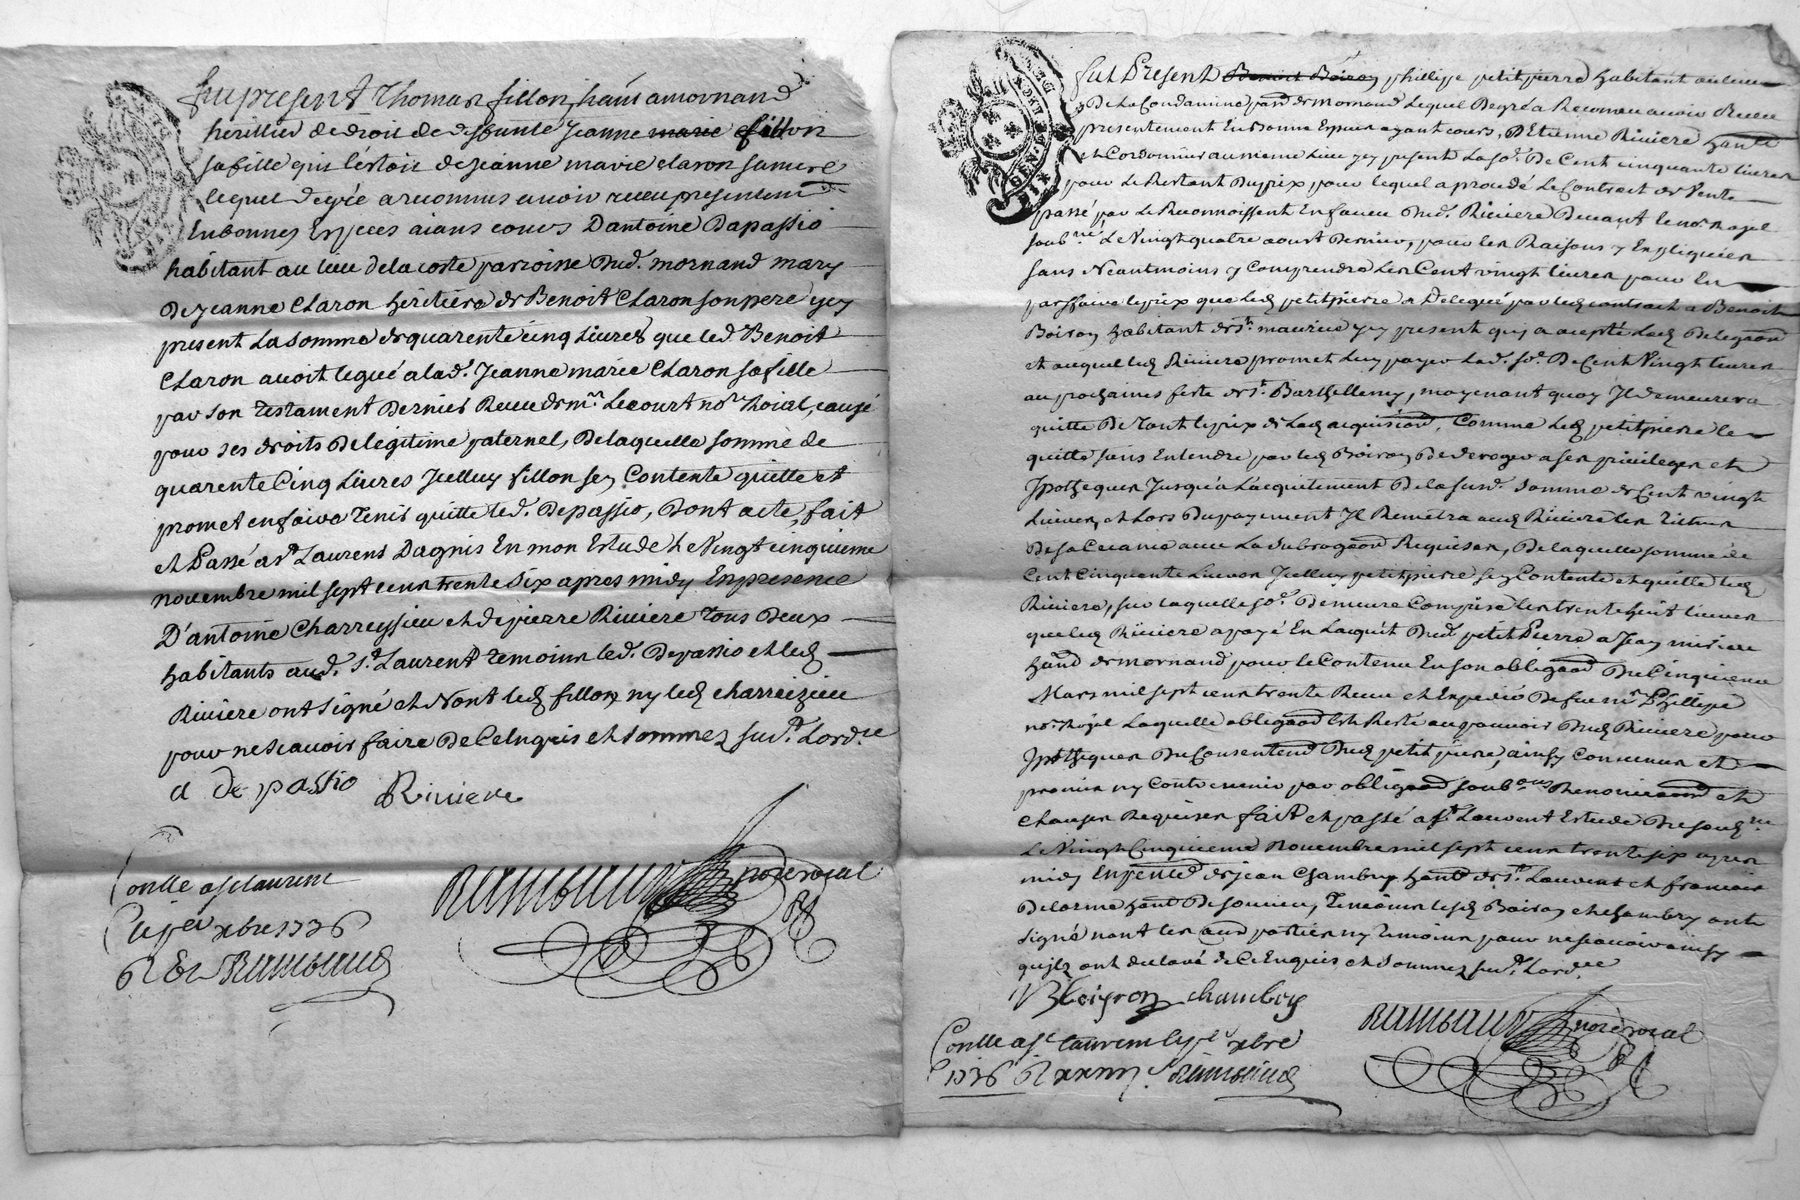 fut present Thomas fillon hant a mornand
herillier de droit de deffunte Jeanne marie fillon
sa fille qui l'estoit de jeanne marie claron sa mere
lequel degré a reconnus avoir receu presentem
En bonnes Especes aians cours D'antoine Dapassio
habitant au lieu de la coste parroisse dud. mornand mary
de Jeanne Claron heritiere de Benoit Claron son pere icy
present La somme de quarente cinq Livres que led. Benoit
Claron avoit legué a lad. Jeanne marie Claron sa fille
par son testament Dernier Receu de mr. Lecourt nore Roial, causé
pour ses droits de legitime paternel, De laquelle somme de
quarente Cinq Livres Jcelluy fillon sen Contente quitte et
promet en faire tenir quitte led. Depassio, Dont acte, fait
et Passé a st Laurens Dagnis En mon Estude Le Vingt cinquieme
novembre mil sept cens trente six apres midy En presence
D'antoine Charreyzieu et de pierre Riviere tous Deux
habitants aud. St. Laurent temoins led. Depassio et led
Riviere ont signé et Non led fillon ny led charreizieu
pour ne scavoir faire De Ce Enquis et sommez suivt. Lord.ce
a de passio Riviere
Conlle a st laurent
Le per xbre 1736
Rambaud
Rambaud nore roial
fut Present Benoist Boiron phillippe petitpierre habitant au lieu
De La Condamine parr de mornand Lequel Degré a Reconnu avoir Receu
presentement En Bonne Espece ayant cours, D'Etienne Riviere hant
et Cordonnier au meme Lieu icy present La so. De Cent cinquante livres
pour Le Restant Du prix pour lequel a procedé Le Contract de Vente
passé par Le Reconnoissent En faveur Dud. Riviere Devant le nore royal
soub.né Le Vingt quatre aoust Dernier, pour les Raisons y Expliquées
sans Neantmoins y Comprendre Les Cent vingt livres pour Les
parfaire le prix que led petitpierre a Delegué par led contract a Benoit
Boiron habitant de st. maurice icy present qui a acepté Lad Delegaon
et auquel led Riviere promet Luy payer Lad. so. De Cent Vingt livres
au prochaines feste de st. Barthellemy, moyenant quoy Jl demeurera
quitte De tout le prix de Lad acquision, Comme Led petitpierre le
quitte sans Entendre par led Boiron De deroger a ses privileges et
Jpotheques Jusqu'a L'acquitement De la susd. somme de Cent vingt
Livres, et Lors Du payement Jl Remetra aud Riviere les titres
De sa Creance avec La subrogaon Requises, De laquelle somme de
Cent Cinquante Livres Jcelluy petitpierre sen Contente et quitte led
Riviere, sur laquelle so. Demeure Comprise Les trente huit livres
que led Riviere a payé En Lacquit Dud. petit Pierre a Jean
hant de mornand pour le Contenu En son obligaon Du Cinquieme
Mars mil sept cens trente Receu et Expedié De feu mr Phillipe
nore. Royal Laquelle obligaon Est Resté au pouvoir Dud Riviere pour
Jpotheques Du Consentemt Dud petit pierre, ainsy Convenus et
promis ny Contrevenir par obligaon soub.ons Renonciaons et
Clauses Requises fait et passé a st. Laurent Estude Du soub.né
Le Vingt Cinquieme Novembre mil sept cens trente six apres
midy En presence de jean Chambry hant de st. Laurent et francois
Delorme hant De soucieu, temoins lesd Boiron et Chambry ont
signé non les aud parties ny temoins pour ne scavoir ainsy
qu'ilz ont declaré de Ce Enquis et sommez suivt. Lord.ce
B boiyron chambry
Conlle a st laurent le per xbre
1736 Rambaud
Rambaud nore roial